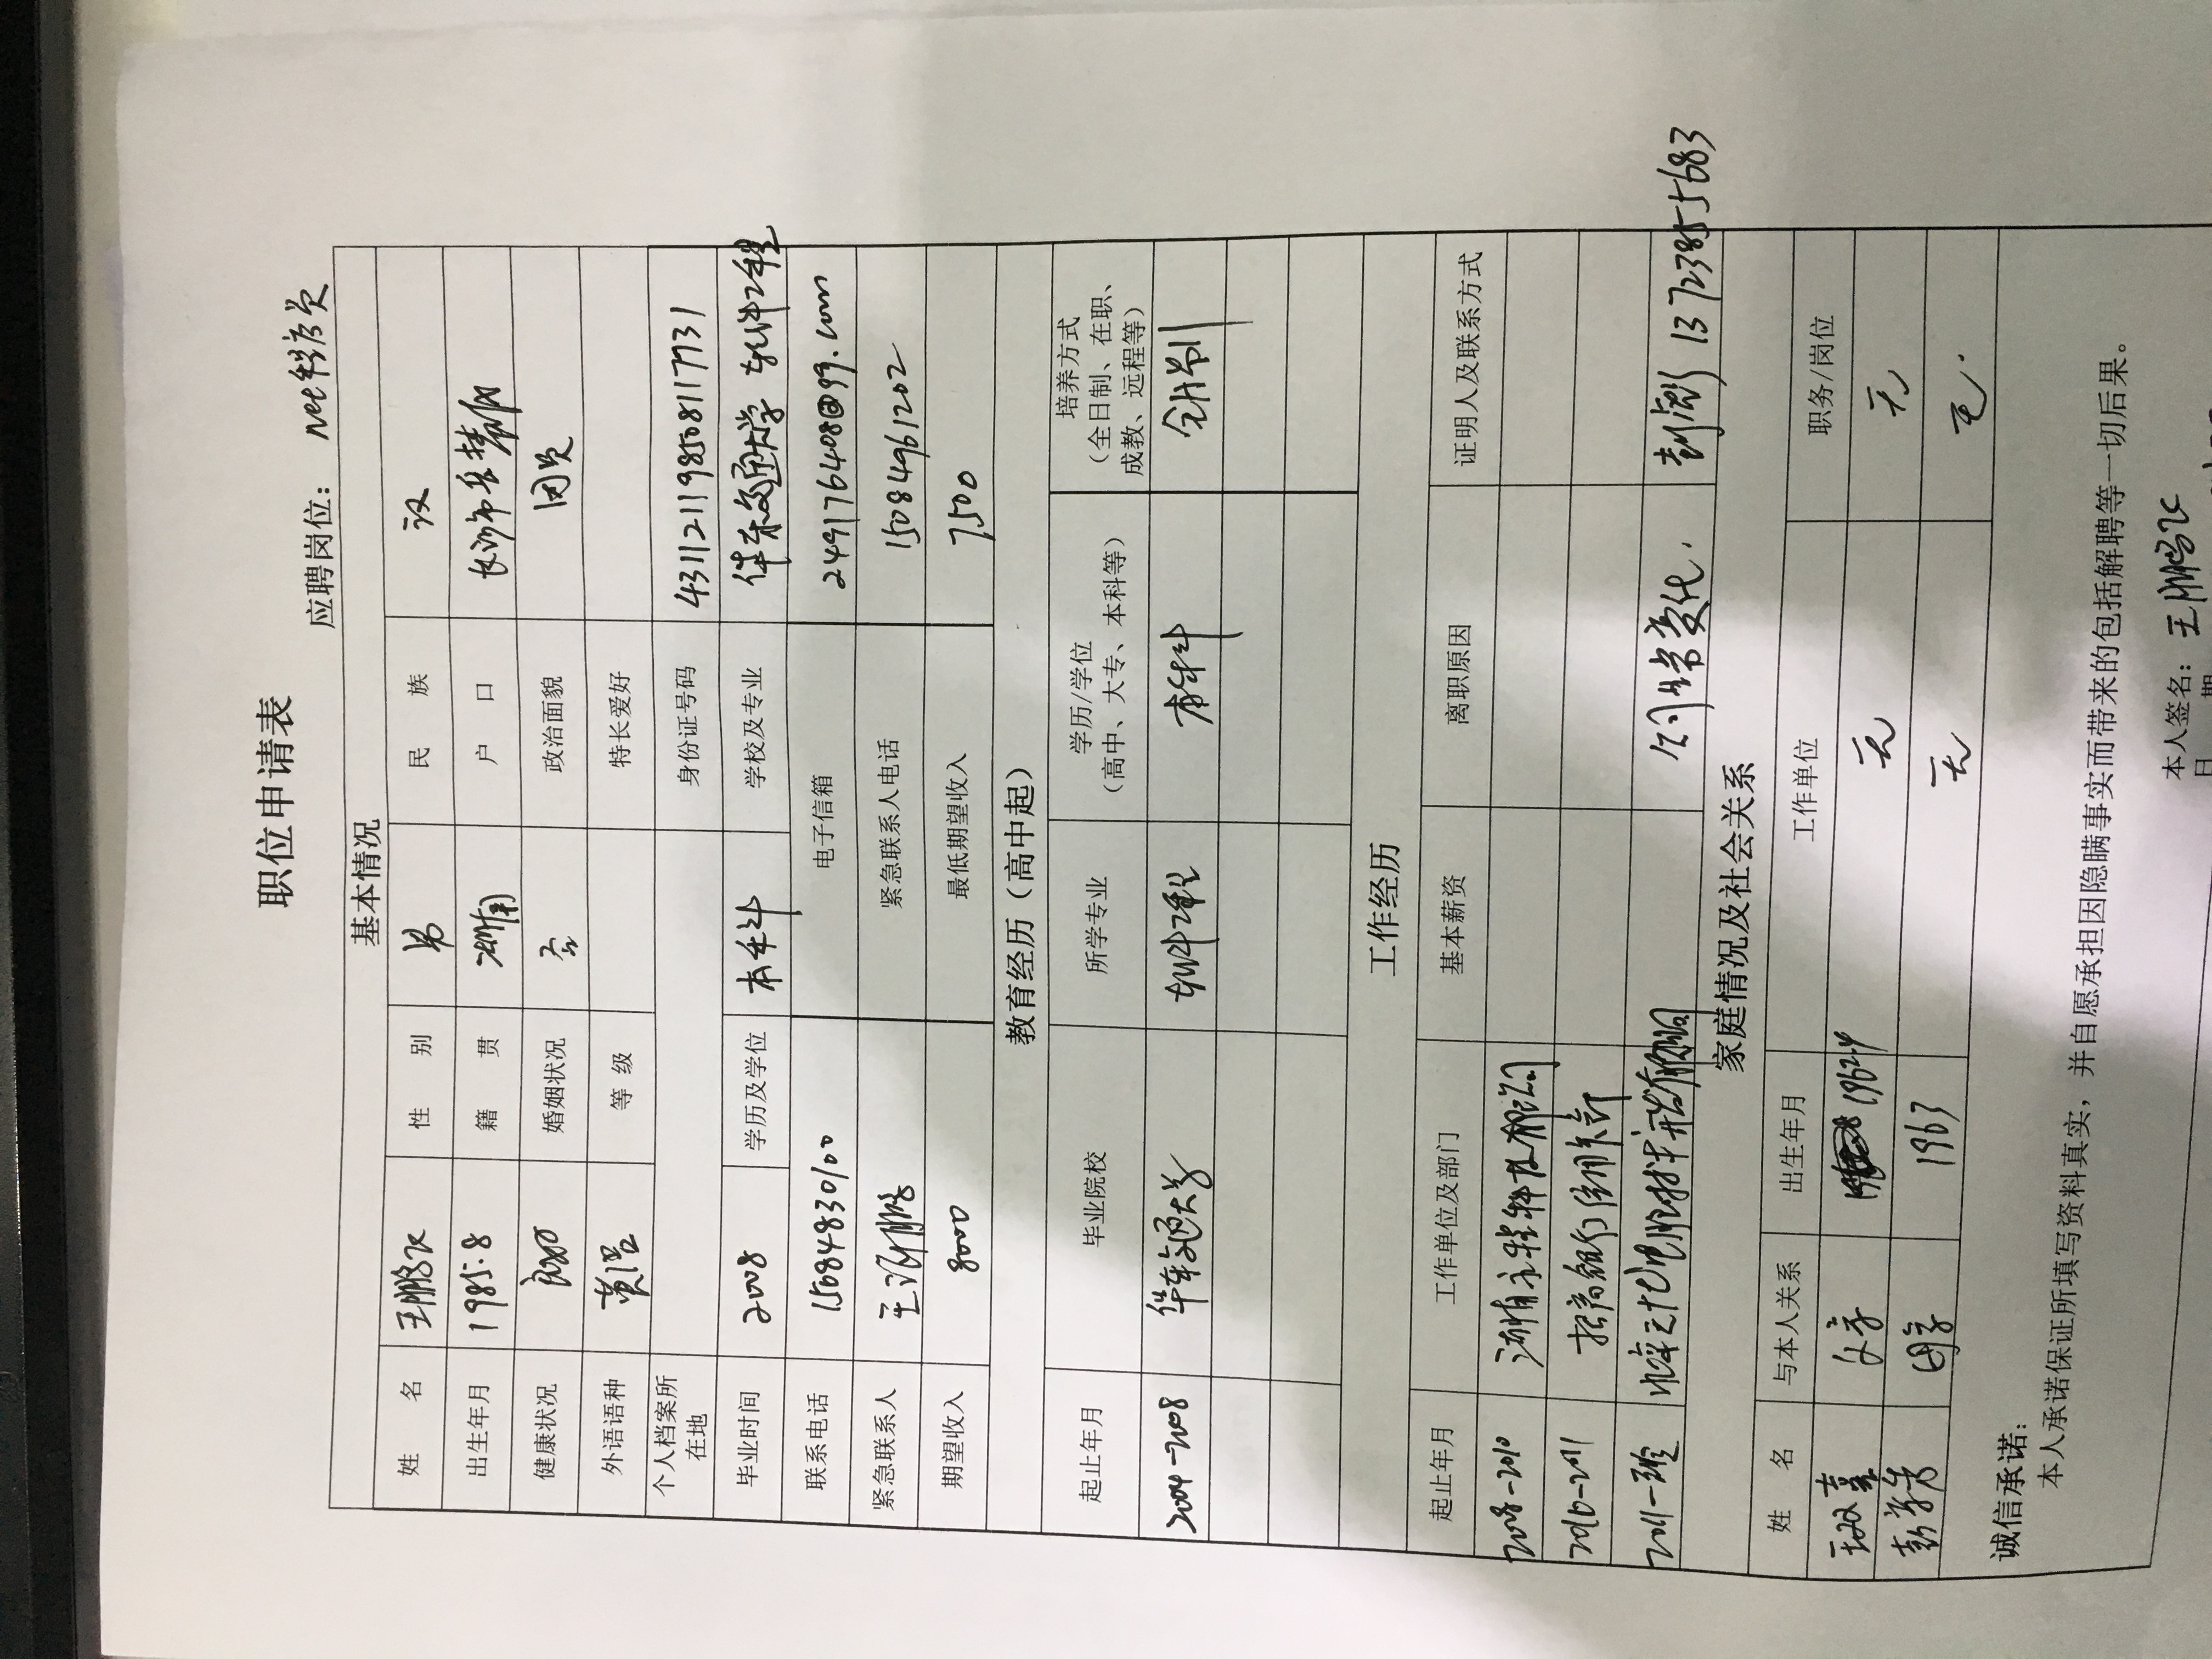 职位申请表
应聘岗位： net程序员
基本情况
姓 名 王鹏飞 性 别 男 民 族 汉
出生年月 1985.8 籍 贯 湖南 户 口 长沙市岳麓区
健康状况 良好 婚姻状况 否 政治面貌 团员
外语语种 英语 等 级 特长爱好
个人档案所
在地 身份证号码 431121198508117731
毕业时间 2008 学历及学位 本科 学校及专业 华东交通大学 软件工程
联系电话 15084830100 电子信箱 249176408@qq.com
紧急联系人 王 鹏 紧急联系人电话 15084961202
期望收入 8000 最低期望收入 7500
教育经历（高中起）
起止年月 毕业院校 所学专业 学历/学位
（高中、大专、本科等） 培养方式
（全日制、在职、
成教、远程等）
2004-2008 华东交通大学 软件工程 本科 全日制
工作经历
起止年月 工作单位及部门 基本薪资 离职原因 证明人及联系方式
2008-2010 湖南 科技有限公司
2010-2011 招商银行信用卡部
2011-至今 电脑技术开发有限公司 公司 变化. 彭 13723855683
家庭情况及社会关系
姓 名 与本人关系 出生年月 工作单位 职务/岗位
王 父亲 1962.4 无 无
彭 母亲 1963 无 无.
诚信承诺：
本人承诺保证所填写资料真实，并自愿承担因隐瞒事实而带来的包括解聘等一切后果。
本人签名： 王鹏飞
日 期